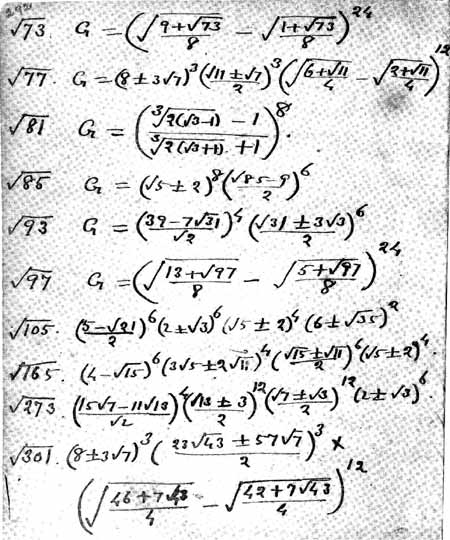 292
√73 G = (√((9+√73)/8) − √((1+√73)/8))^24
√77. G = (8 ± 3√7)^3 ((√11 ± √7)/2)^3 (√((6+√11)/4) − √((2+√11)/4))^12
√81 G = ((∛(2(√3−1)) − 1)/(∛(2(√3+1)) + 1))^8.
√85 G = (√5 ± 2)^8 ((√85−9)/2)^6
√93 G = ((39−7√31)/√2)^4 ((√31 ± 3√3)/2)^6
√97 G = (√((13+√97)/8) − √((5+√97)/8))^24
√105. ((5−√21)/2)^6 (2±√3)^6 (√5 ± 2)^4 (6 ± √35)^2
√165. (4−√15)^6 (3√5 ± 2√11)^4 ((√15 ± √11)/2)^6 (√5 ± 2)^4.
√273. ((15√7−11√13)/√2)^4 ((√13 ± 3)/2)^12 ((√7 ± √3)/2)^12 (2 ± √3)^6.
√301. (8 ± 3√7)^3 ((23√43 ± 57√7)/2)^3 ×
(√((46+7√43)/4) − √((42+7√43)/4))^12